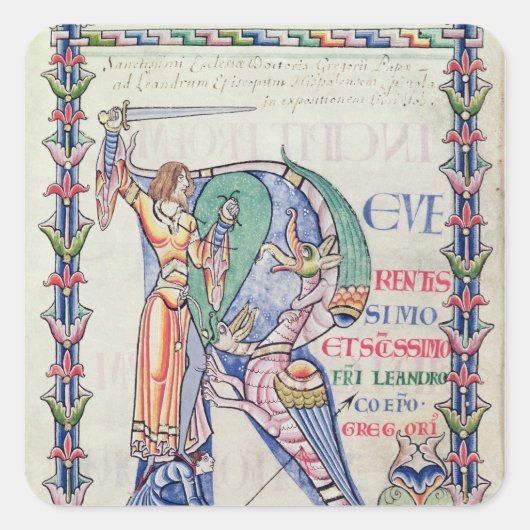 Sanctissimi Ecclesiæ Doctoris Gregorii Papæ
ad Leandrum Episcopum Hispalensem Epistola
in expositionem Beati Iob.
INCIPIT PROEM
R EVE
RENTIS
SIMO
ET SCISSIMO
FRI LEANDRO
COEPO·
GREGORI